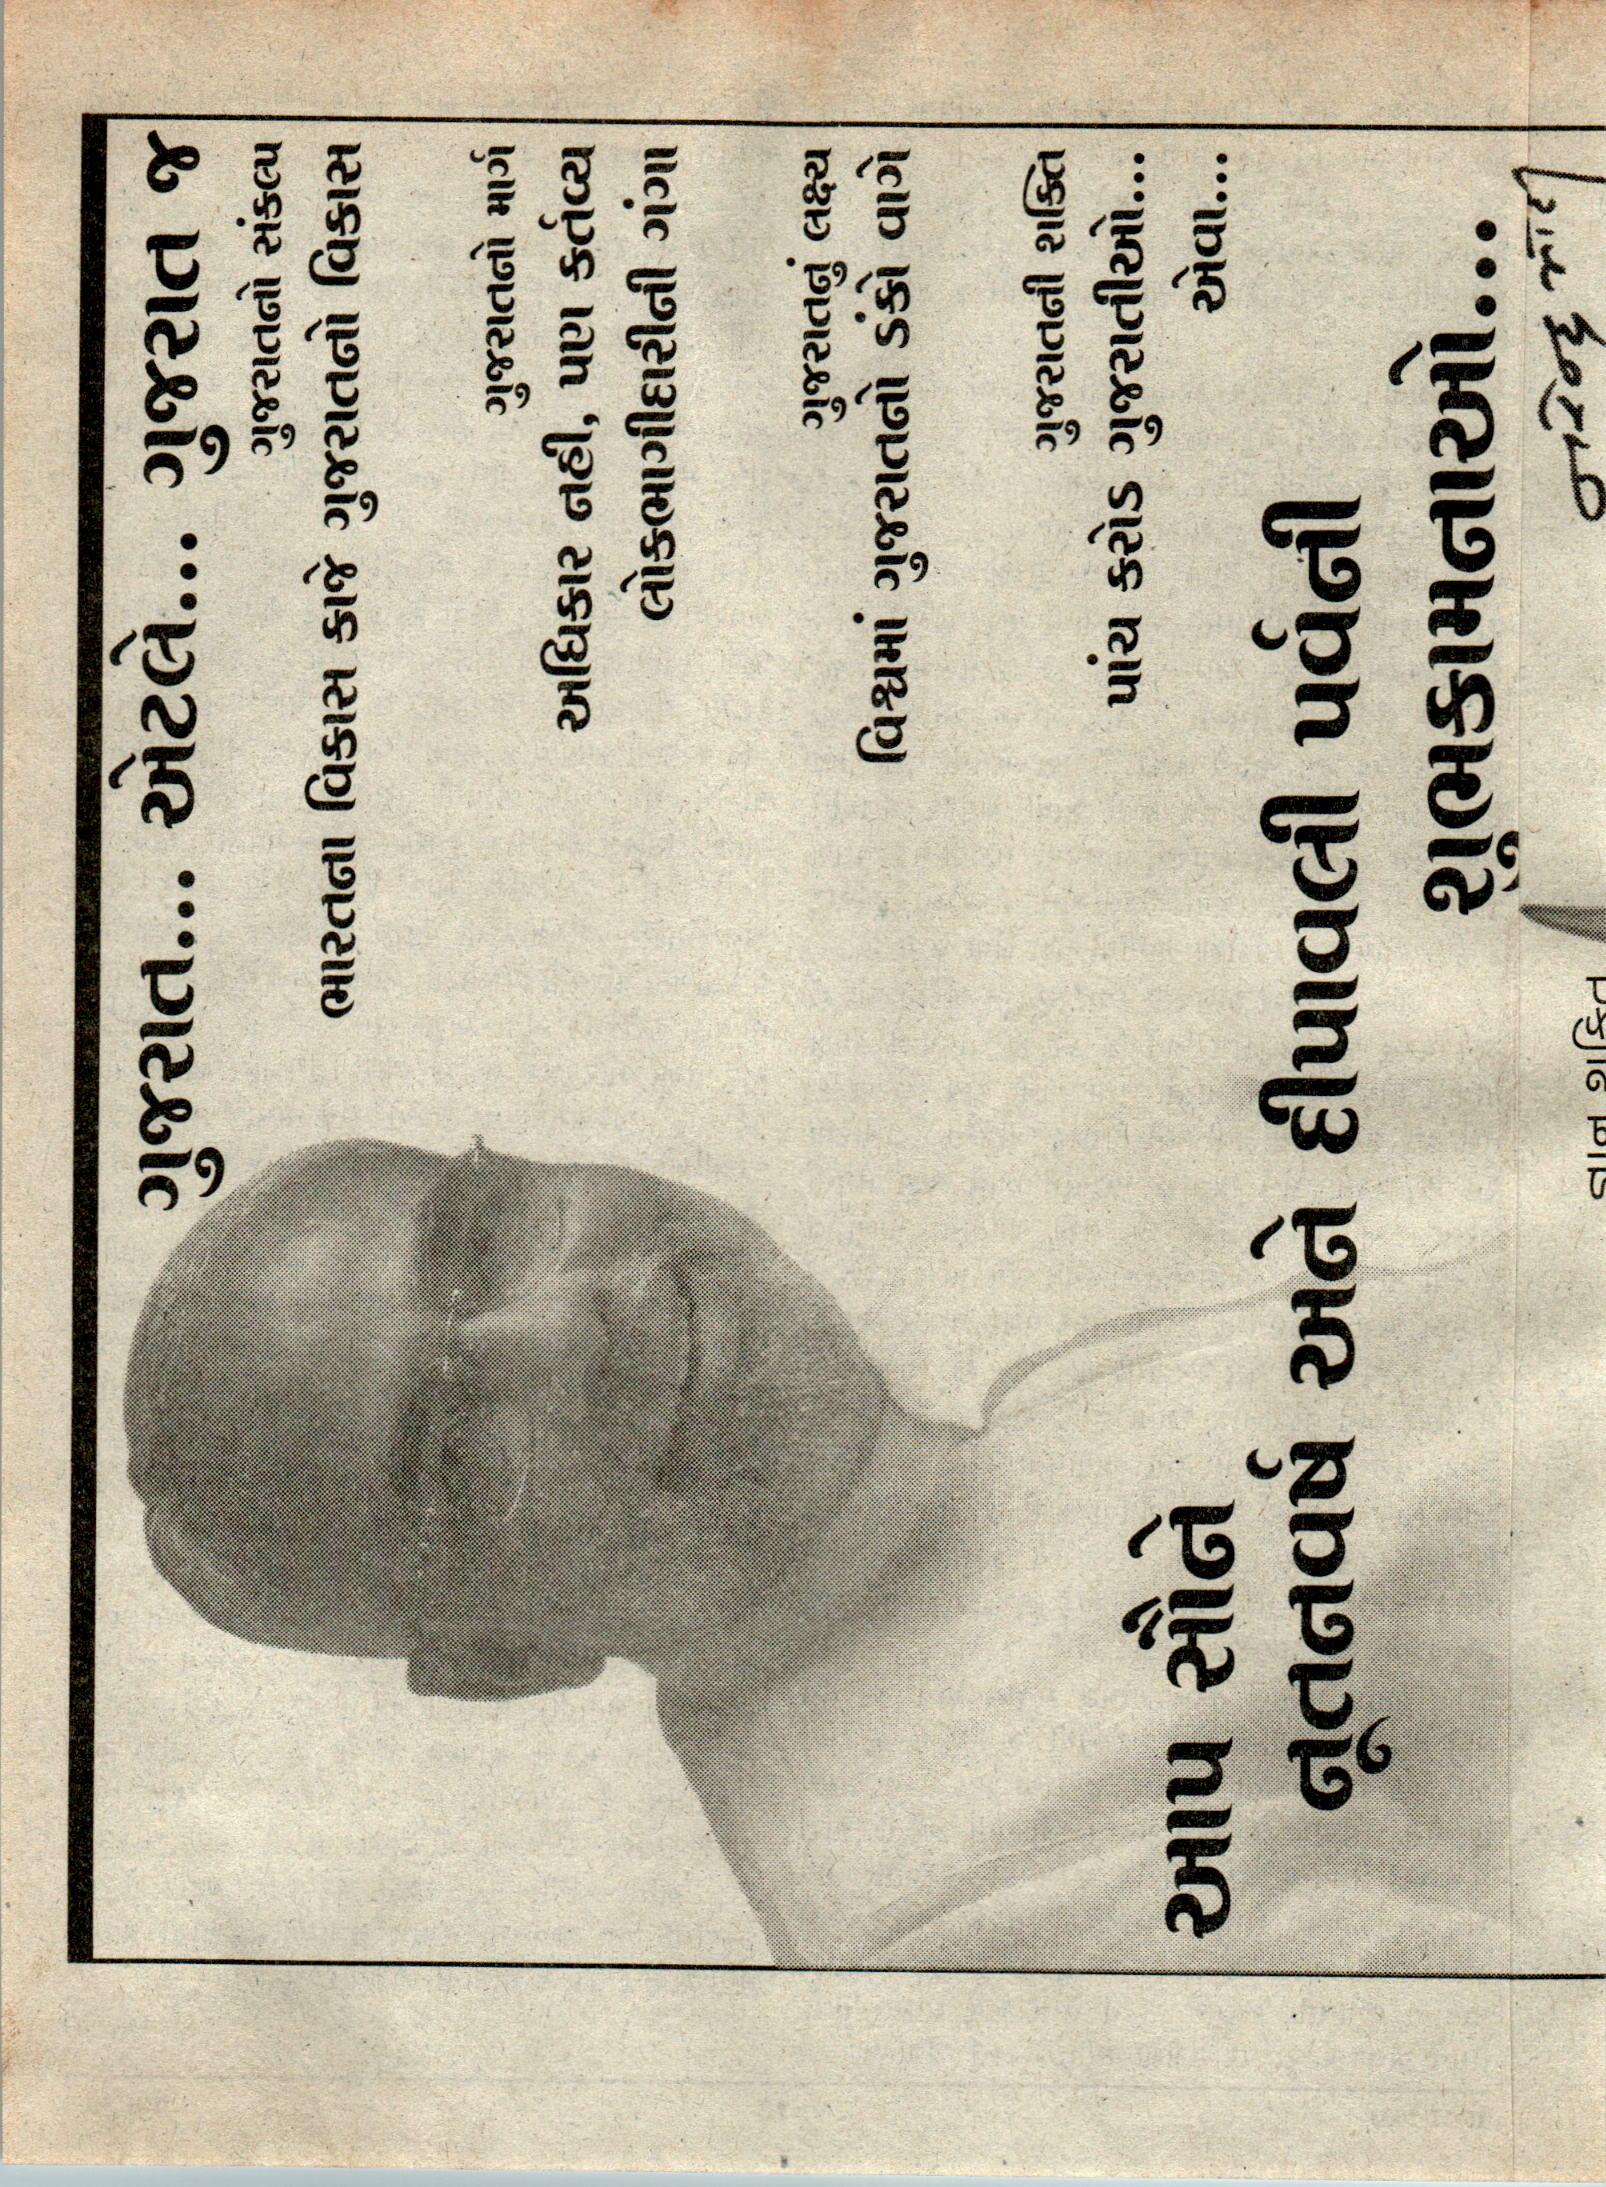 ગુજરાત... એટલે... ગુજરાત જ
ગુજરાતનો સંકલ્પ
ભારતના વિકાસ કાજે ગુજરાતનો વિકાસ
ગુજરાતનો માર્ગ
અધિકાર નહીં, પણ કર્તવ્ય
લોકભાગીદારીની ગંગા
ગુજરાતનું લક્ષ્ય
વિશ્વમાં ગુજરાતનો ડંકો વાગે
ગુજરાતની શક્તિ
પાંચ કરોડ ગુજરાતીઓ...
એવા...
આપ સૌને
નૂતનવર્ષ અને દીપાવલી પર્વની
શુભકામનાઓ...